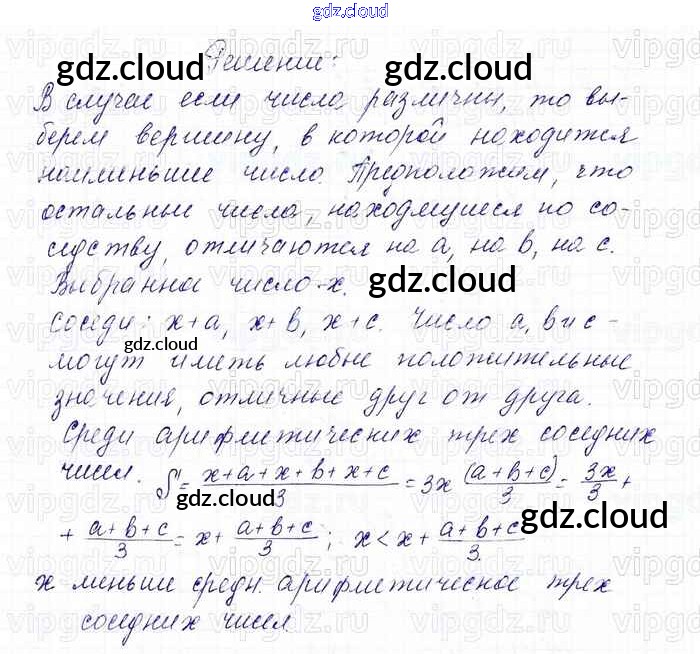 gdz.cloud
Решение:
В случае если числа различны, то вы-
берем вершину, в которой находится
наименьшее число. Предположим, что
остальные числа, находящиеся по со-
седству, отличаются на a, на b, на c.
Выбранное число - x.
соседи: x+a, x+b, x+c. Числа a, b и c -
могут иметь любые положительные
значения, отличные друг от друга.
Среди арифметических трех соседних
чисел. S = x+a+x+b+x+c / 3 = 3x (a+b+c) / 3 = 3x / 3 +
+ a+b+c / 3 = x + a+b+c / 3 ; x < x + a+b+c / 3
x меньше средн. арифметическое трех
соседних чисел.
gdz.cloud
gdz.cloud
gdz.cloud
gdz.cloud
gdz.cloud
gdz.cloud